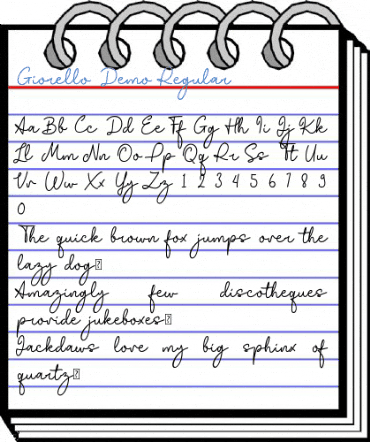 Giorello Demo Regular
Aa Bb Cc Dd Ee Ff Gg Hh Ii Jj Kk
Ll Mm Nn Oo Pp Qq Rr Ss Tt Uu
Vv Ww Xx Yy Zz 1 2 3 4 5 6 7 8 9
0
The quick brown fox jumps over the
lazy dog
Amazingly few discotheques
provide jukeboxes
Jackdaws love my big sphinx of
quartz